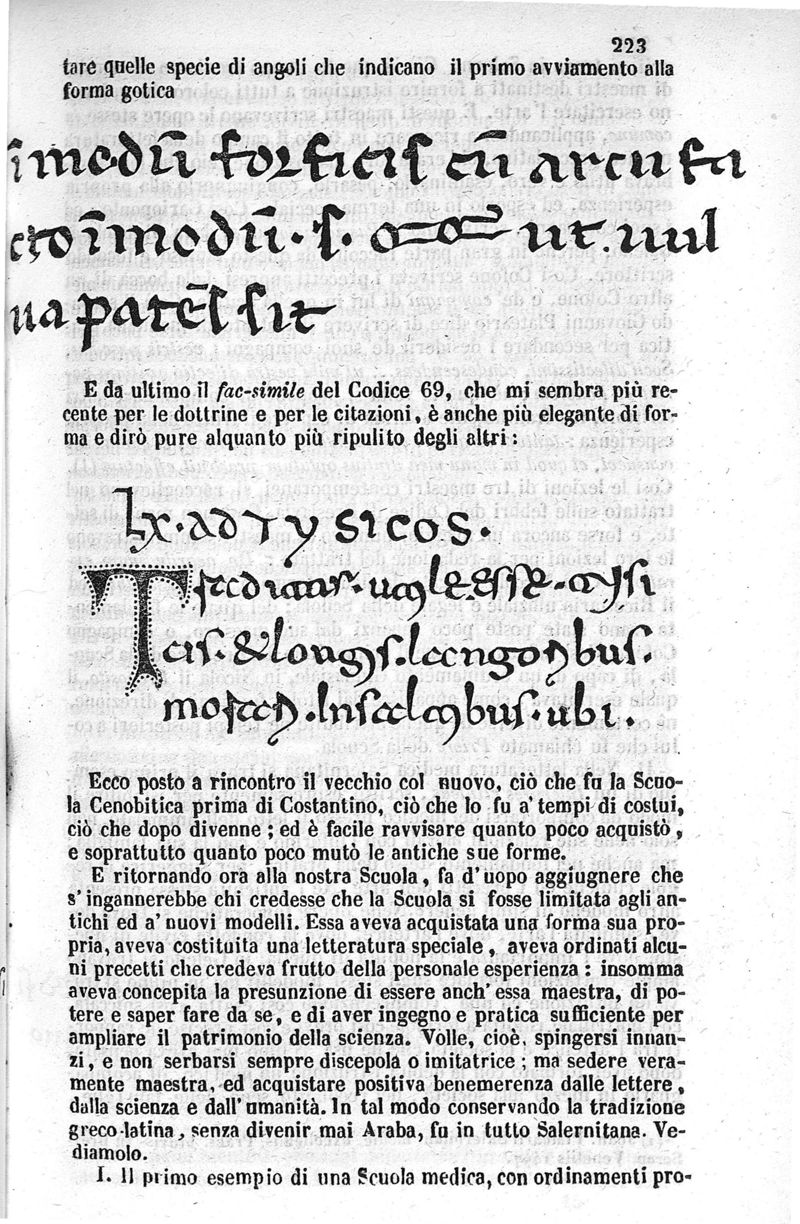 223
tare quelle specie di angoli che indicano il primo avviamento alla
forma gotica
ī modū forficis cū arcu fa
cto ī modū · s · ut . uul
ua patēs sit
E da ultimo il fac-simile del Codice 69, che mi sembra più re-
cente per le dottrine e per le citazioni, è anche più elegante di for-
ma e dirò pure alquanto più ripulito degli altri :
lx · AD TySICOS ·
T
cis · & longis .
bus ·
bus · ubi .
Ecco posto a rincontro il vecchio col nuovo, ciò che fu la Scuo-
la Cenobitica prima di Costantino, ciò che lo fu a' tempi di costui,
ciò che dopo divenne ; ed è facile ravvisare quanto poco acquistò ,
e soprattutto quanto poco mutò le antiche sue forme.
E ritornando ora alla nostra Scuola , fa d' uopo aggiugnere che
s' ingannerebbe chi credesse che la Scuola si fosse limitata agli an-
tichi ed a' nuovi modelli. Essa aveva acquistata una forma sua pro-
pria, aveva costituita una letteratura speciale , aveva ordinati alcu-
ni precetti che credeva frutto della personale esperienza : insomma
aveva concepita la presunzione di essere anch' essa maestra, di po-
tere e saper fare da se, e di aver ingegno e pratica sufficiente per
ampliare il patrimonio della scienza. Volle, cioè, spingersi innan-
zi , e non serbarsi sempre discepola o imitatrice ; ma sedere vera-
mente maestra, ed acquistare positiva benemerenza dalle lettere ,
dalla scienza e dall' umanità. In tal modo conservando la tradizione
greco-latina, senza divenir mai Araba, fu in tutto Salernitana. Ve-
diamolo.
I. Il primo esempio di una Scuola medica, con ordinamenti pro-